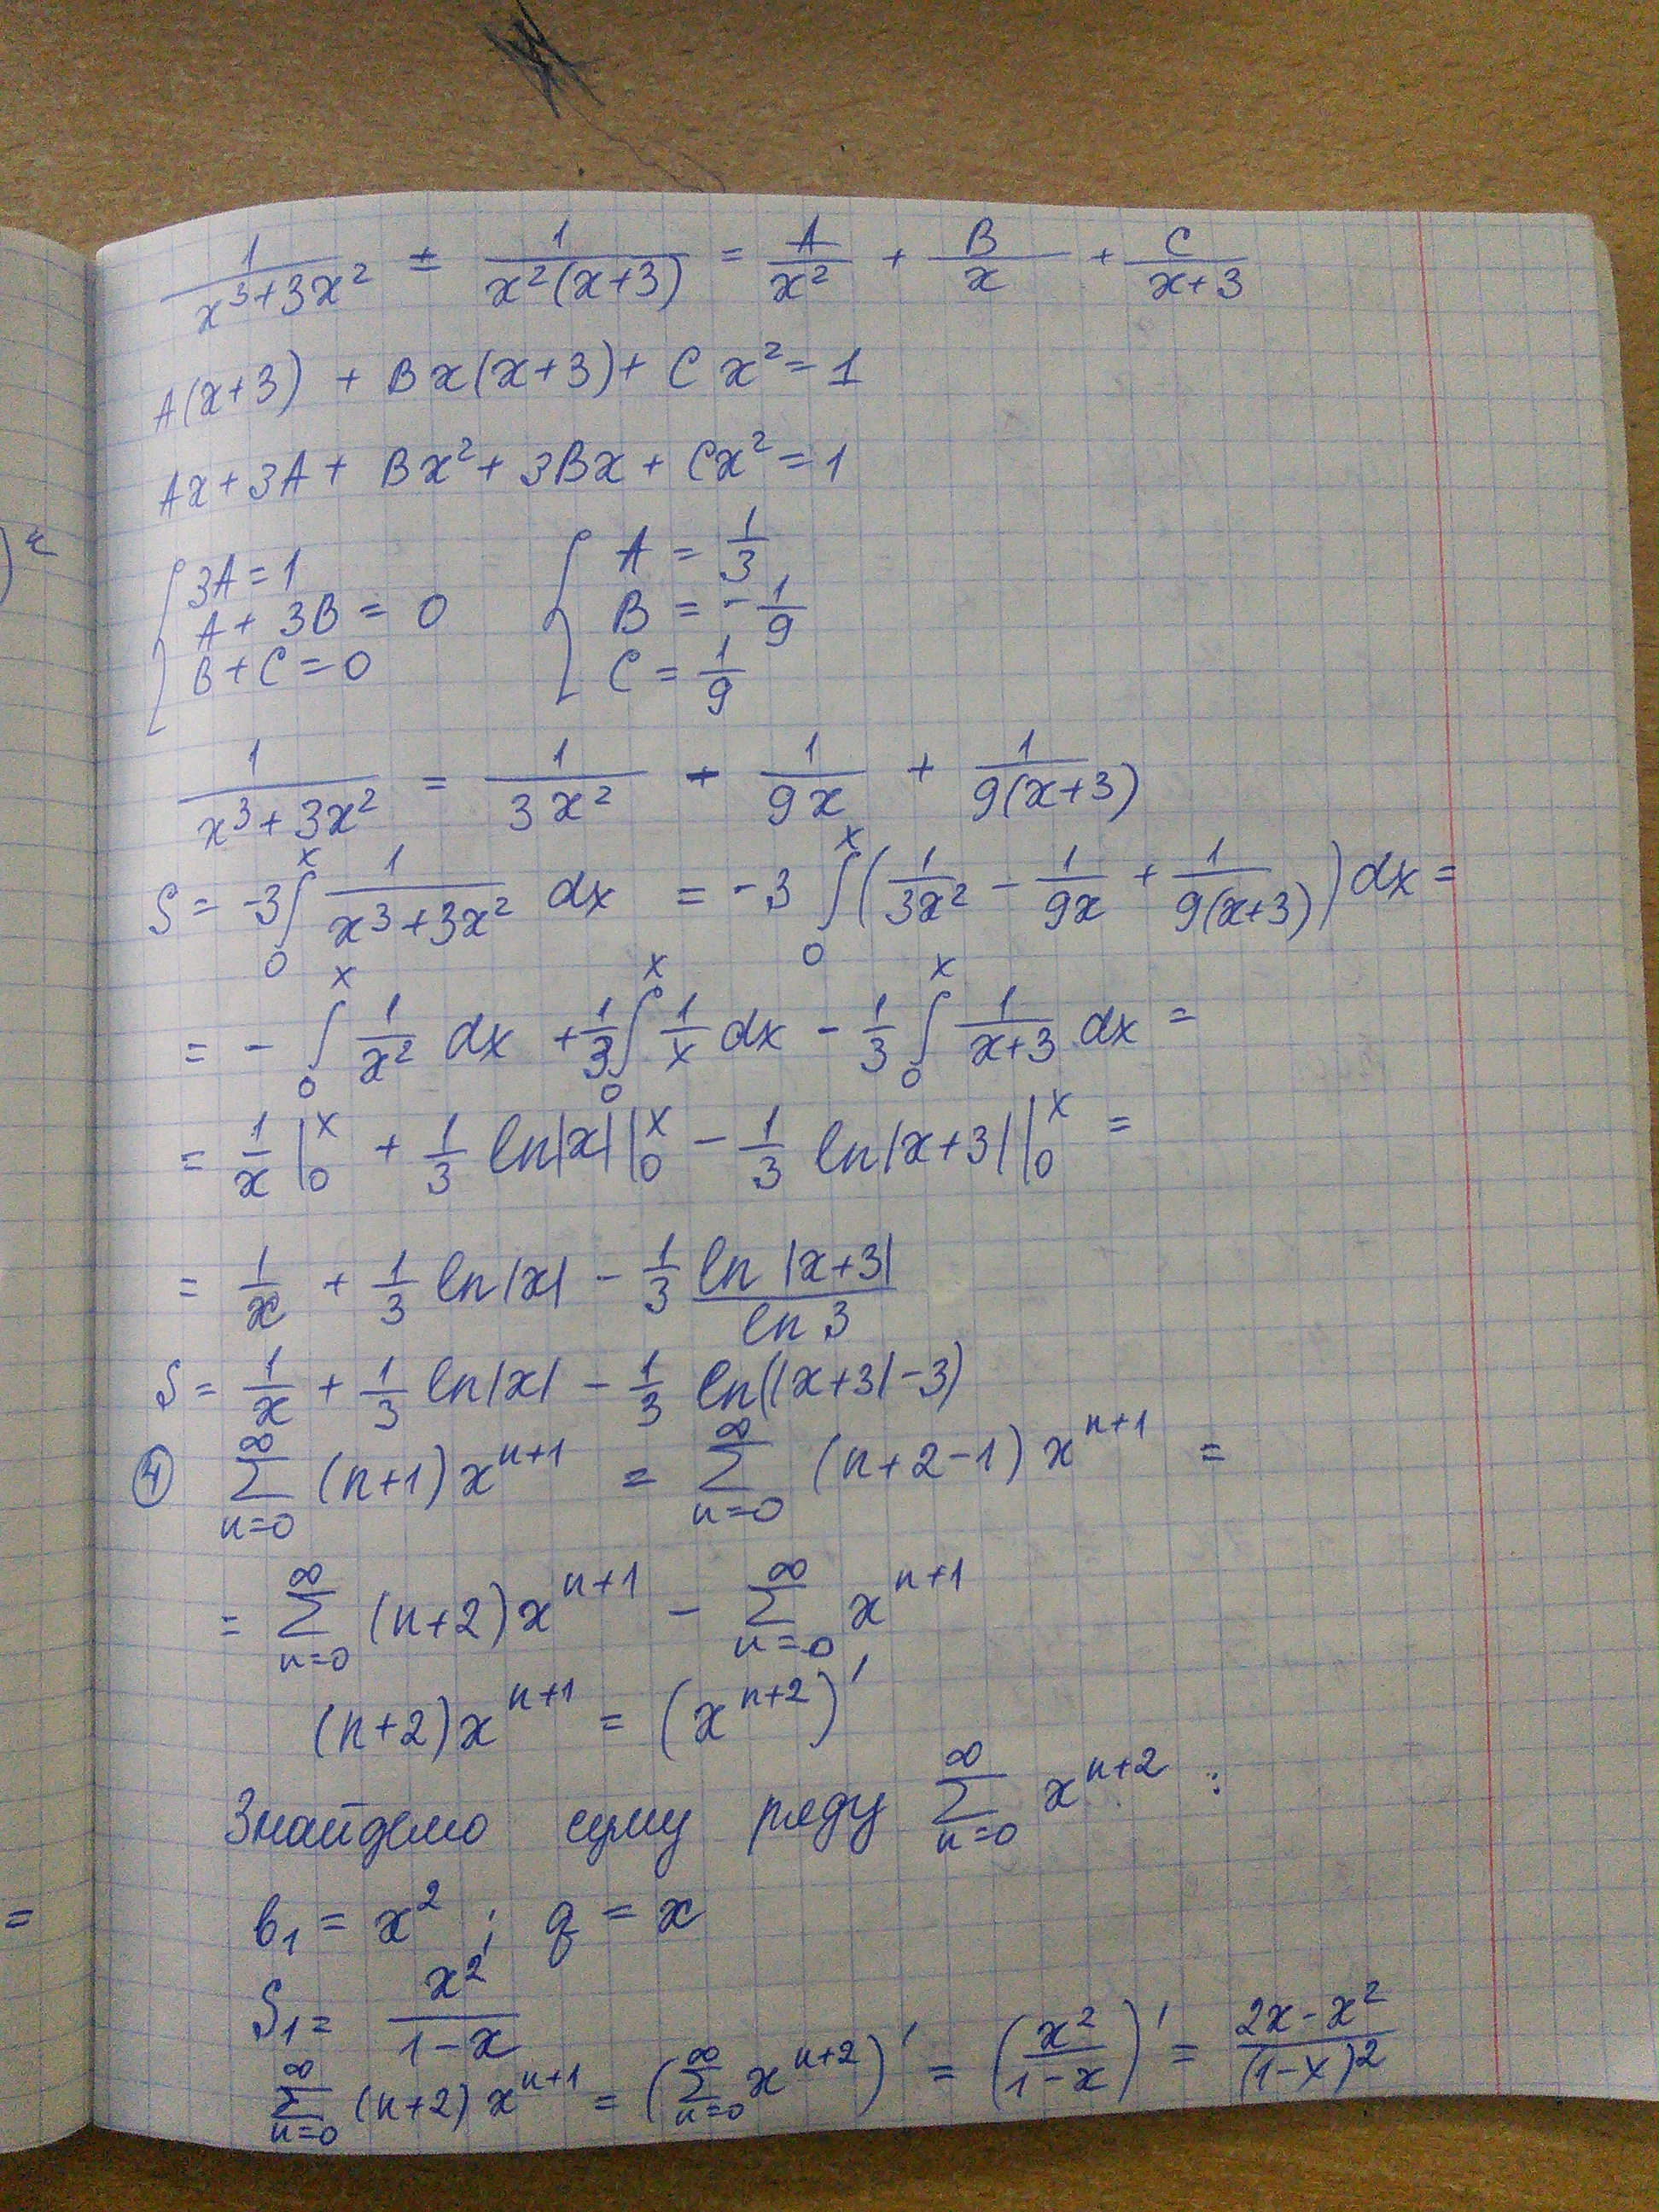 1/(x³+3x²) = 1/(x²(x+3)) = A/x² + B/x + C/(x+3)
A(x+3) + Bx(x+3) + Cx² = 1
Ax + 3A + Bx² + 3Bx + Cx² = 1
{ 3A = 1 { A = 1/3
A + 3B = 0 B = -1/9
B + C = 0 C = 1/9
1/(x³+3x²) = 1/(3x²) - 1/(9x) + 1/(9(x+3))
S = -3 ∫₀ˣ 1/(x³+3x²) dx = -3 ∫₀ˣ (1/(3x²) - 1/(9x) + 1/(9(x+3))) dx =
= - ∫₀ˣ 1/x² dx + 1/3 ∫₀ˣ 1/x dx - 1/3 ∫₀ˣ 1/(x+3) dx =
= 1/x |₀ˣ + 1/3 ln|x| |₀ˣ - 1/3 ln|x+3| |₀ˣ =
= 1/x + 1/3 ln|x| - 1/3 ln|x+3|/ln 3
S = 1/x + 1/3 ln|x| - 1/3 ln(|x+3|-3)
④ ∑_{n=0}^{∞} (n+1)x^{n+1} = ∑_{n=0}^{∞} (n+2-1)x^{n+1} =
= ∑_{n=0}^{∞} (n+2)x^{n+1} - ∑_{n=0}^{∞} x^{n+1}
(n+2)x^{n+1} = (x^{n+2})'
Знайдемо суму ряду ∑_{n=0}^{∞} x^{n+2} :
b₁ = x² ; q = x
S₁ = x²/(1-x)
∑_{n=0}^{∞} (n+2)x^{n+1} = (∑_{n=0}^{∞} x^{n+2})' = (x²/(1-x))' = (2x-x²)/(1-x)²
=